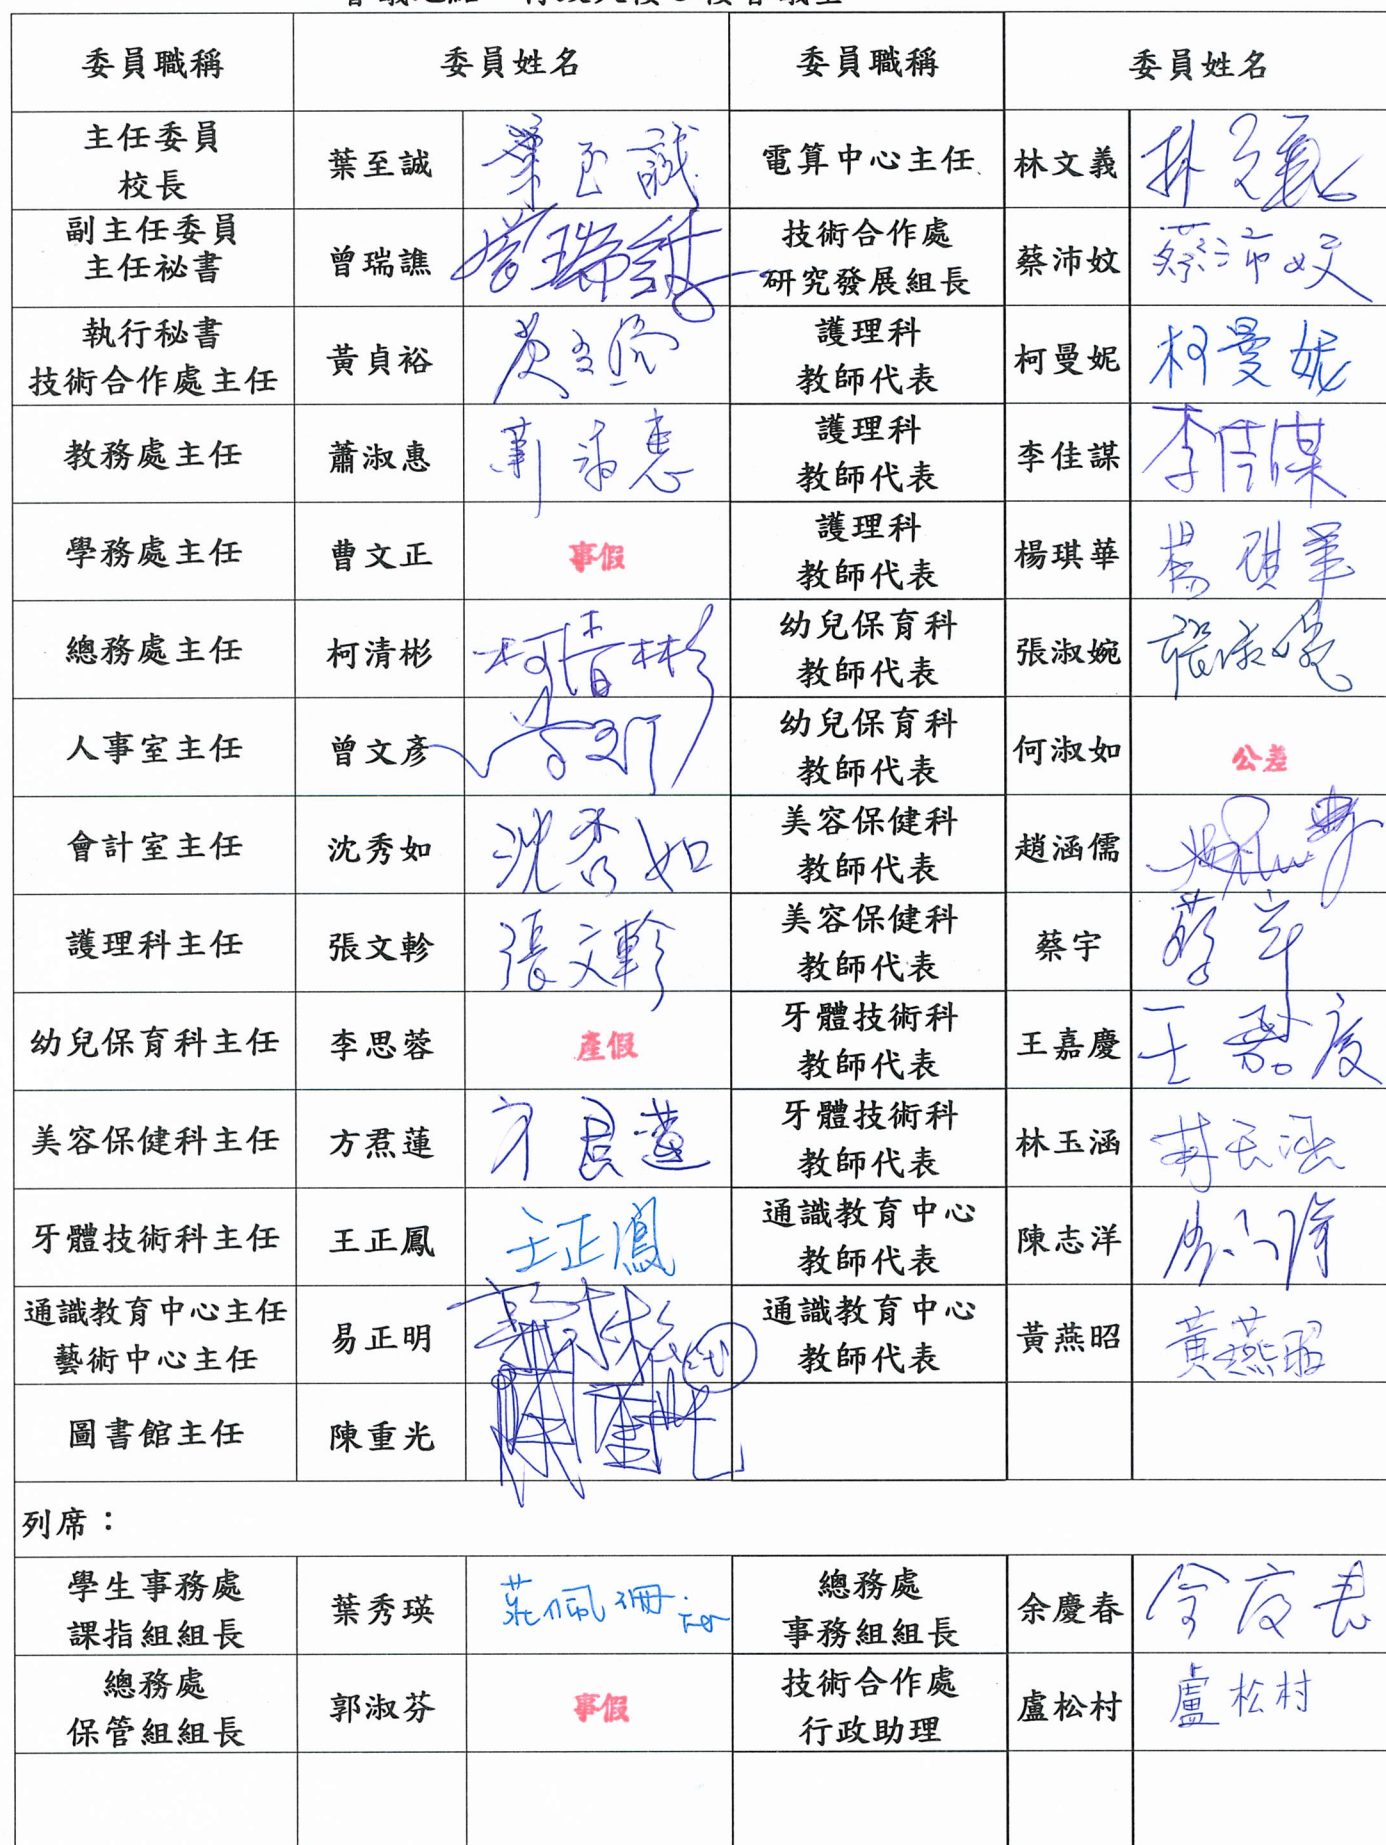 委員職稱 委員姓名 委員職稱 委員姓名
主任委員
校長 葉至誠 葉至誠 電算中心主任 林文義 林文義
副主任委員
主任祕書 曾瑞譙 曾瑞譙 技術合作處
研究發展組長 蔡沛妏 蔡沛妏
執行秘書
技術合作處主任 黃貞裕 護理科
教師代表 柯曼妮 柯曼妮
教務處主任 蕭淑惠 護理科
教師代表 李佳謀 李佳謀
學務處主任 曹文正 事假 護理科
教師代表 楊琪華 楊琪華
總務處主任 柯清彬 柯清彬 幼兒保育科
教師代表 張淑婉 張淑婉
人事室主任 曾文彥 幼兒保育科
教師代表 何淑如 公差
會計室主任 沈秀如 沈秀如 美容保健科
教師代表 趙涵儒
護理科主任 張文軫 張文軫 美容保健科
教師代表 蔡宇 蔡宇
幼兒保育科主任 李思蓉 產假 牙體技術科
教師代表 王嘉慶 王嘉慶
美容保健科主任 方焄蓮 方焄蓮 牙體技術科
教師代表 林玉涵 林玉涵
牙體技術科主任 王正鳳 王正鳳 通識教育中心
教師代表 陳志洋
通識教育中心主任
藝術中心主任 易正明 通識教育中心
教師代表 黃燕昭 黃燕昭
圖書館主任 陳重光 陳重光
列席：
學生事務處
課指組組長 葉秀瑛 莊佩珊 總務處
事務組組長 余慶春 余慶春
總務處
保管組組長 郭淑芬 事假 技術合作處
行政助理 盧松村 盧松村